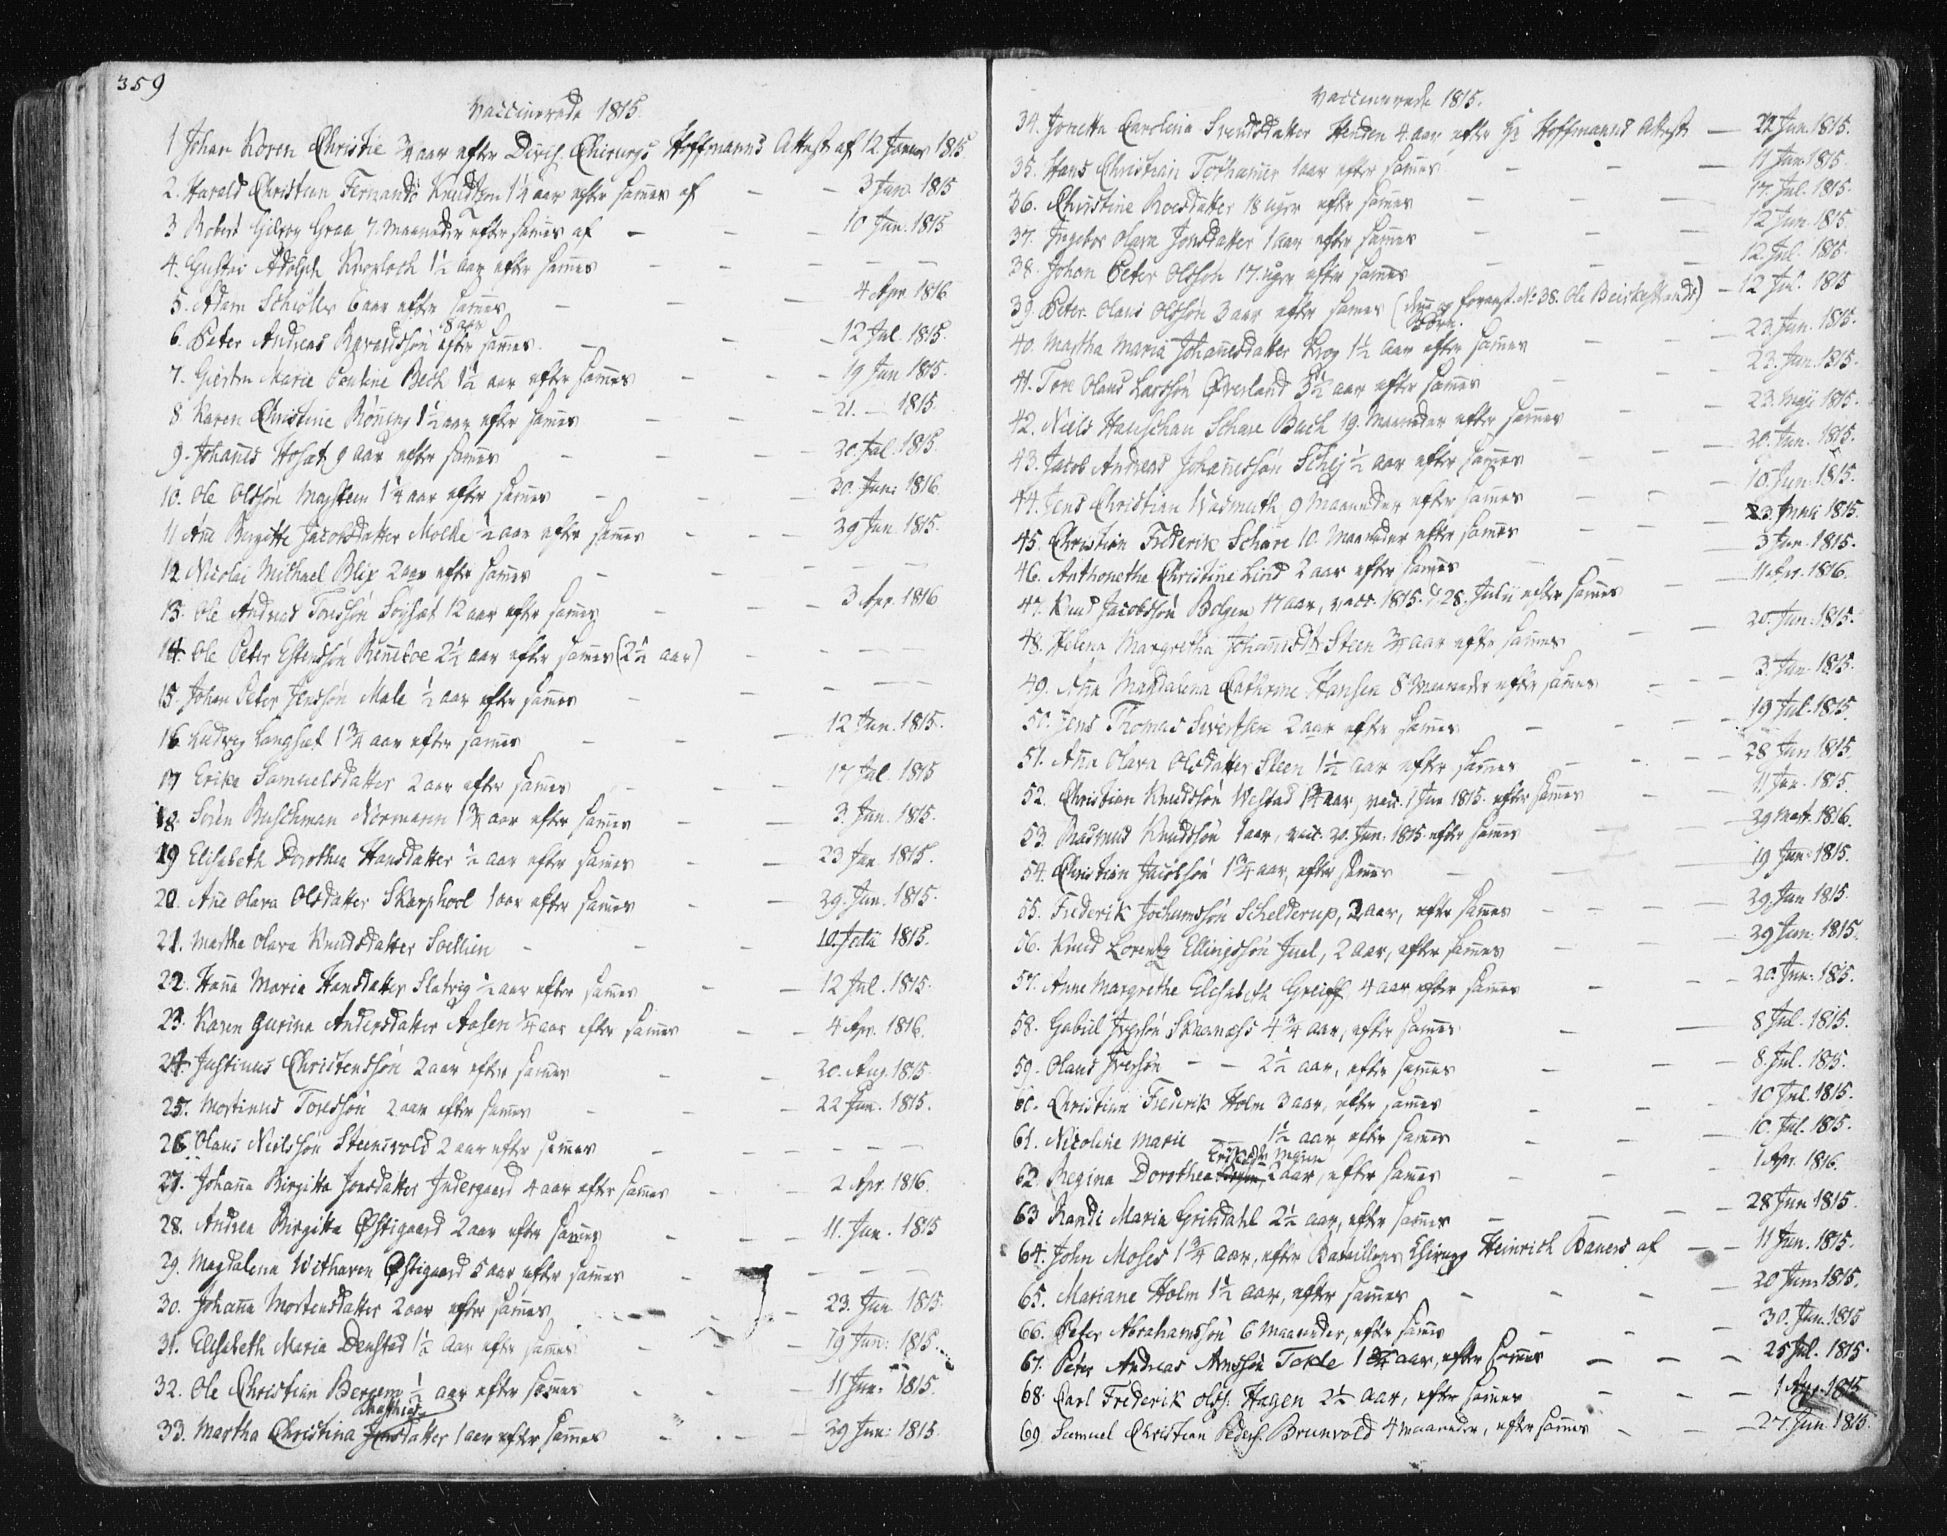 359
Vaccinerede 1815.
1 Johan Koren Christie ¾ aar efter Divis. Chirurgs Hoffmanns Attest af 12 Januar 1815
2. Harald Christian Fernando Knudtzon 1¼ aar efter sam̄es af — — 3 Jan. 1815
3 Robert Gilroy Graa 7. Maaneder efter sam̄es af — — — 10 Jan. 1815
4. Gustav Adolph Knorloch 1½ aar efter sam̄es — — — — —
5. Adam Schröller 6 aar efter sam̄es — — — 4 Apr. 1816
8 aar
6. Peter Andreas efter sam̄es. — — — 12 Jul. 1815.
7. Giertru Marie Pauline Bech 1½ aar efter sam̄es — — — 19 Jun 1815.
8 Karen Christine Rönning 1½ aar efter sam̄es — — — 21. — 1815.
9. Johan̄es Hoset 9 aar efter sam̄es — — — 20. Jul. 1815.
10. Ole Olssön 1¼ aar efter sam̄es — — — 30. Jan: 1816
11 An̄e Birgitte Jacobsdatter Molde ½ aar efter sam̄es — — — 29 Jun. 1815.
12 Nicolai Michael Blix 2 aar efter sam̄es — — — — —
13. Ole Andreas Toressön 12 aar efter sam̄es — — — 3 Apr. 1816
14. Ole Peter Estenssön Ren̄eboe 2½ aar efter sam̄es (2½ aar) — — — —
15 Johan Peter Jenssön Male ½ aar efter sam̄es — — — — —
16 Ludvig Langset 1¾ aar efter sam̄es — — — 12 Jun. 1815.
17 Erika Samuelsdatter 2 aar efter sam̄es — — — 17 Jul. 1815
18 Sören Buschman Normann 1¾ aar efter sam̄es — — — 3. Jun. 1815.
19 Elisabeth Dorothea Hansdatter ½ aar efter sam̄es — — 23 Jun 1815.
20. An̄e Olava Olsdatter Skarphoel 1 aar efter sam̄es — — 29. Jun. 1815.
21. Martha Olava Knudsdatter — — — 10 Julii 1815.
22. Han̄a Maria Hansdatter Slatrig ½ aar efter sam̄es — — 12 Jul. 1815.
23. Karen Gurina Andersdatter Aasen ¾ aar efter sam̄es — — 4 Apr. 1816.
24. Justinus Christenssön 2 aar efter sam̄es — — 20. Aug. 1815.
25. Mortinus Toressön 2 aar efter sam̄es — — 22 Jun. 1815.
26. Olaus Nielssön Steensvold 2 aar efter sam̄es — — — — —
27. Johan̄a Birgitta Jonsdatter Indergaard 4 aar efter sam̄es — — 2 Apr. 1816.
28. Andrea Birgitta Østigaard 2 aar efter sam̄es — — — 11. Jun. 1815
29. Magdalena Withaven Østigaard 5 aar efter sam̄es — — — —
30. Johan̄a Mortensdatter 2 aar efter sam̄es — — — 23. Jun. 1815.
31. Elisabeth Maria Denstad 1½ aar efter sam̄es — — — 19 Jun: 1815.
32. Ole Christian Bergem ½ aar efter sam̄es — — — 11 Jun: 1815.
Mathias
33. Martha Christina Jensdatter 1 aar efter sam̄es — — — 29 Jun: 1815.
Vaccinerede 1815.
34. Jonetta Carolina Svendsdatter Henden 4 aar efter Hr Hoffmanns Attest — 22 Jun. 1815.
35. Hans Christian 1 aar efter sam̄es — — — 11 Jun. 1815.
36. Christine Roesdatter 18 uger efter sam̄es — — — 17 Jul. 1815.
37. Ingebor Olava Jonsdatter 1 aar efter sam̄es — — — 12 Jun. 1815.
38. Johan Peter Olssön 17 uger efter sam̄es — — — 12 Jul. 1815.
39. Peter Olaus Olssön 3 aar efter sam̄es (den og foregaa. No 38. Ole Beiskestrands) — 12 Jul. 1815
Börn.
40. Martha Maria Johan̄esdatter Krog 1½ aar efter sam̄es — — — 23. Jun. 1815.
41. Tore Olaus Larssön Øverland 3½ aar efter sam̄es — — — 23. Jun. 1815.
42. Niels Hauschau Schare Buch 19. Maaneder efter sam̄es — — 23. Maji 1815.
43. Jacob Andreas Johan̄essön ½ aar efter sam̄es — — — 20. Jun. 1815.
44. Jens Christian Wasmuth 9 Maaneder efter sam̄es — — — 10. Jun. 1815.
45. Christian Frederik Schare 10. Maaneder efter sam̄es — — 23. Junii 1815.
46. Anthonetha Christine Lind 2 aar efter sam̄es — — — 3 Jun. 1815.
47. Knud Jacobssön Bolgen 17 aar, vacc. 1815. d. 28. Julii efter sam̄es — — 11 Apr. 1816.
48. Helena Margretha Johan̄esdtr Steen ¾ aar efter sam̄es — — 20. Jun. 1815.
49. An̄a Magdalena Cathrine Hansen 8 Maaneder efter sam̄es — — 3. Jun. 1815.
50. Jens Thomas Sivertsen 2 aar efter sam̄es — — — 19 Jul. 1815.
51. An̄a Olava Olsdatter Steen 1½ aar efter sam̄es — — — 28 Jun 1815.
52. Christian Knudssön Westad 1¾ aar, vacc. 1 Jun 1815. efter sam̄es — — 11 Jan. 1815.
53. Rasmus Knudssön 1 aar, vacc. 20. Jun. 1815 efter sam̄es — — 29 Mart. 1816.
54. Christian Jacobssön 1¾ aar, efter sam̄es — — — 19 Jun: 1815.
55. Frederik Jochumssön Schelderup, 2 aar, efter sam̄es — — — 29 Jun 1815.
56. Knud Lorentz Ellingssön Juel, 2 aar, efter sam̄es — — — 29 Jun: 1815.
57. Anne Margrethe Elisabeth Greiff 4 aar efter sam̄es — — — 20. Jun: 1815.
58. Gabriel Iverssön Skaanæss 4¾ aar, efter sam̄es — — 8 Jul. 1815.
59. Olaus Iverssön — — 2½ aar, efter sam̄es — — — 8. Jul. 1815.
60. Christian Frederik Holm 3 aar, efter sam̄es — — — 10 Jul. 1815.
61. Nicoline Marie 1½ aar, efter sam̄es — — — 10. Jul. 1815.
62. Regina Dorothea 2 aar, efter sam̄es — — 1 Apr. 1816.
63 Randi Maria Grindahl 2½ aar, efter sam̄es — — — 28 Jun 1815.
64. John Moses 1¾ aar, efter Batallions Chirurg Heinrich Bauers af — — 11 Jun. 1815.
65. Mariane Holm 1½ aar, efter sam̄es — — — 20 Jun. 1815.
66. Peter Abrahamssön 6 Maaneder, efter sam̄es — — — 30. Jun. 1815
67. Peter Andreas Arnssön Tokle 1¾ aar, efter sam̄es — — — 25 Jul. 1815.
68. Carl Frederik Olss. Hagen 2½ aar, efter sam̄es — — — 1 Aug. 1815
69. Samuel Christian Peders. Brunvold 4 Maaneder, efter sam̄es — — — 27. Jun. 1815.